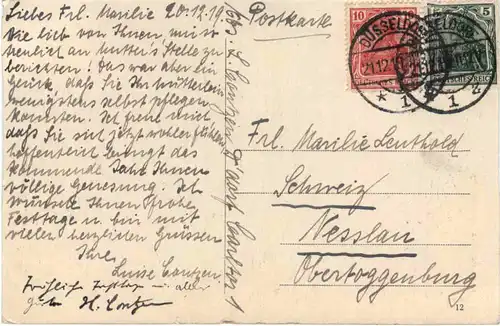 Liebes Frl. Marilie 20.12.19.
Wie lieb von Ihnen, mir so
herzlich an Mutter's Stelle zu
berichten! Das war aber ein
Glück, daß Sie Ihr Mütterlein
wenigstens selbst pflegen
konnten. Ich freue mich,
daß Sie sich jetzt wohler fühlen
hoffentlich bringt das
kommende Jahr Ihnen
völlige Genesung. Ich
wünsche Ihnen frohe
Festtage u. bin mit
vielen herzlichen Grüssen
Ihre
Luise Contzen
Fröhliche Festtage und alles
H. Contzen
L. Contzen D'dorf
Postkarte
10
5
DÜSSELDORF
21.12.19
* 1
1
DEUTSCHES REICH
Frl. Marilie Leuthold
Schweiz
Nesslau
Obertoggenburg
12